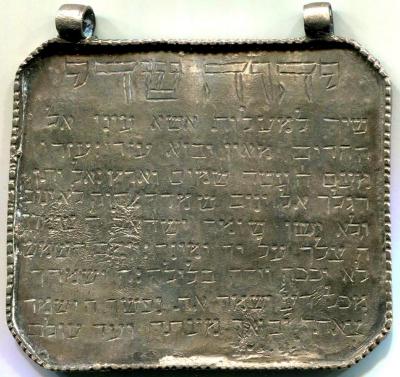 יהוה שדי
שיר למעלות אשא עיני אל
ההרים מאין יבוא עזרי עזרי
מעם ה עשה שמים וארץ אל יתן
רגלך אל ינום שמרך הנה לא ינום
ולא ישן שומר ישראל ה שמרך
ה צלך על יד ימינך יומם השמש
לא יככה וירח בלילה ה ישמרך
מכל רע ישמר את נפשך ה ישמר
צאתך ובאך מעתה ועד עולם